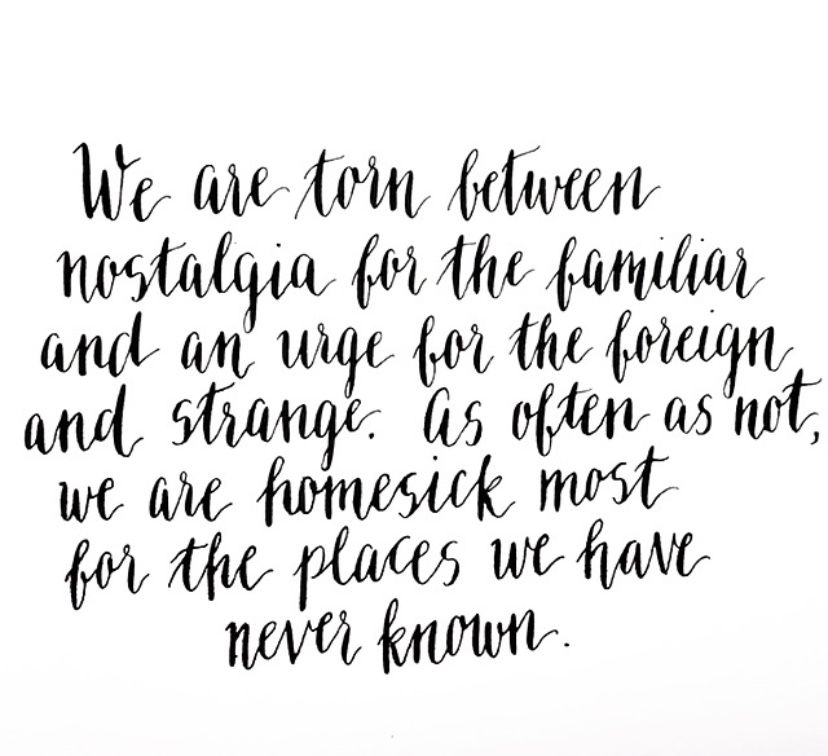 We are torn between
nostalgia for the familiar
and an urge for the foreign
and strange. As often as not,
we are homesick most
for the places we have
never known.